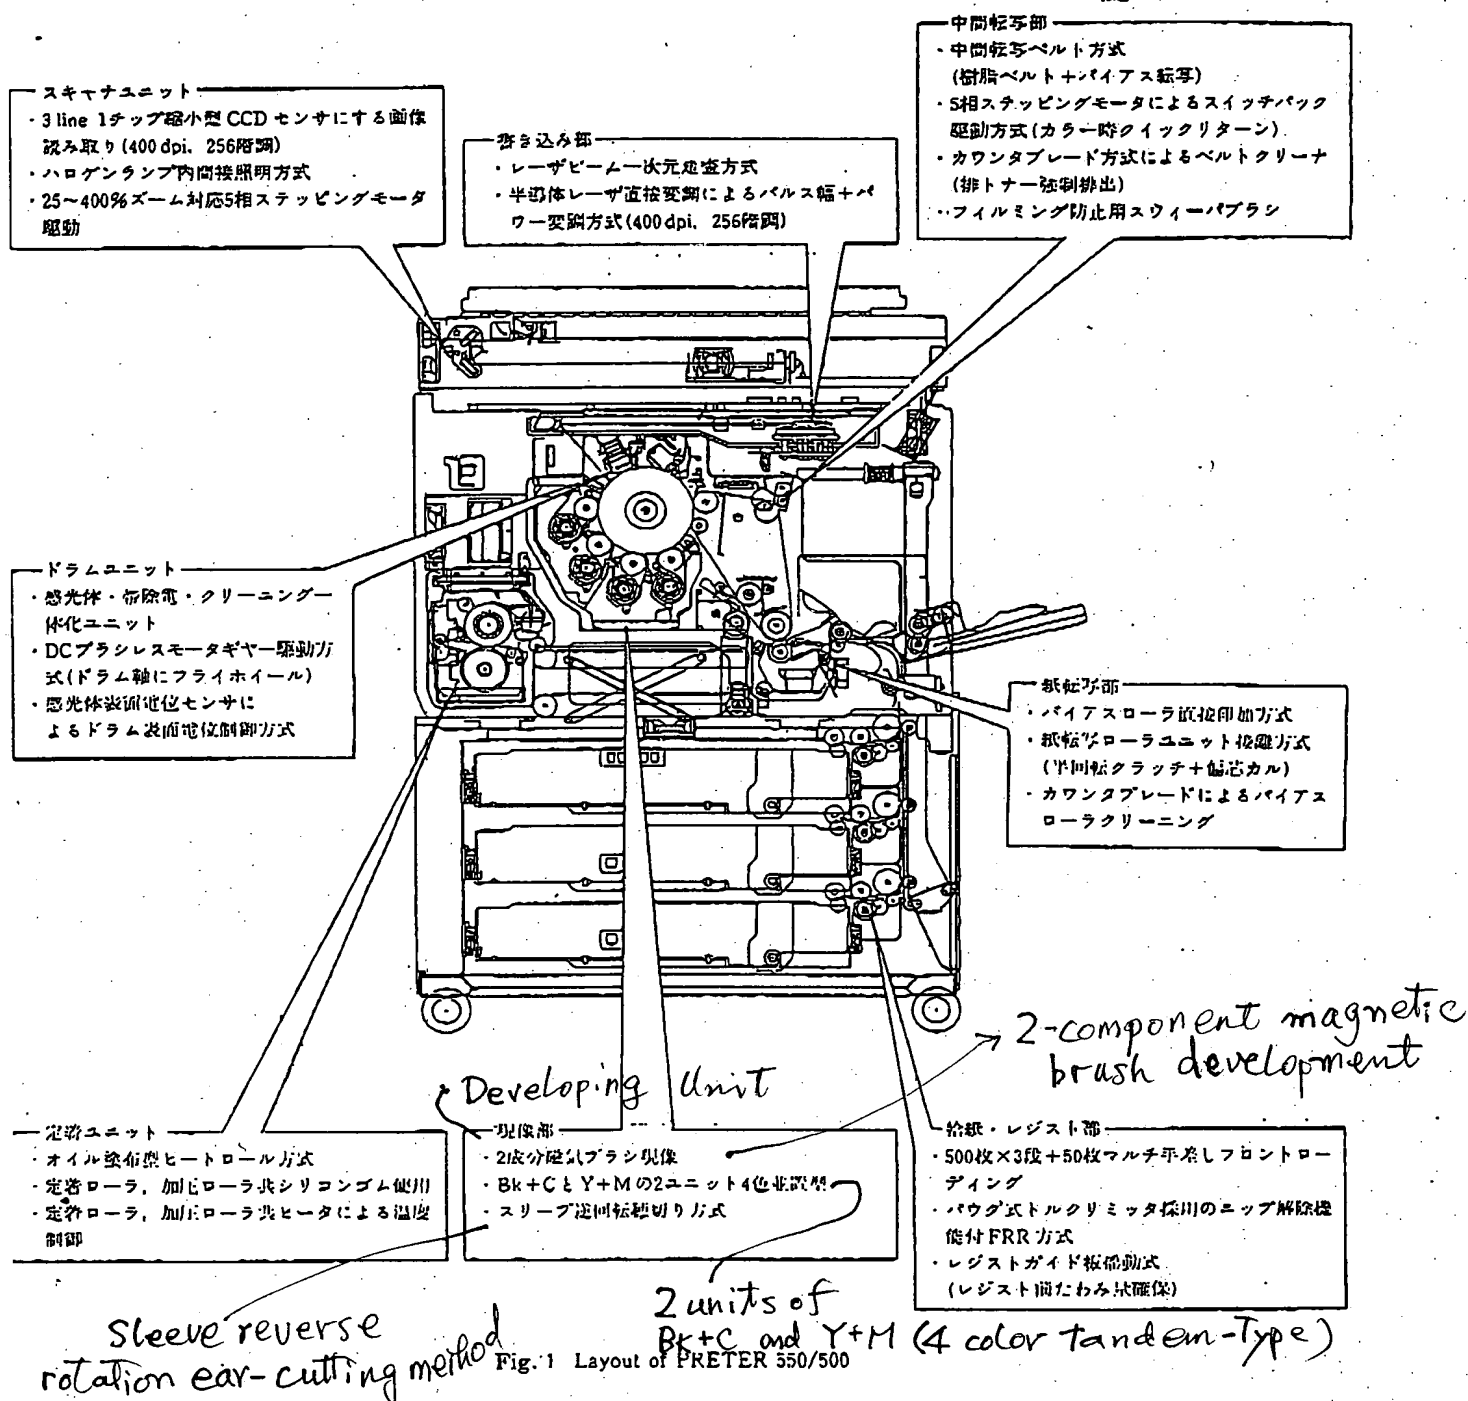 スキャナユニット
・3 line 1チップ縮小型 CCD センサにする画像
読み取り(400 dpi, 256階調)
・ハロゲンランプ内間接照明方式
・25～400%ズーム対応5相ステッピングモータ
駆動
書き込み部
・レーザビーム一次元走査方式
・半導体レーザ直接変調によるパルス幅＋パ
ワー変調方式(400 dpi, 256階調)
中間転写部
・中間転写ベルト方式
(樹脂ベルト＋バイアス転写)
・5相ステッピングモータによるスイッチバック
駆動方式(カラー時クイックリターン)
・カウンタブレード方式によるベルトクリーナ
(排トナー強制排出)
・フィルミング防止用スウィーパブラシ
ドラムユニット
・感光体・帯除電・クリーニング一
体化ユニット
・DCブラシレスモータギヤー駆動方
式(ドラム軸にフライホイール)
・感光体表面電位センサに
よるドラム表面電位制御方式
紙転写部
・バイアスローラ直接印加方式
・紙転写ローラユニット接離方式
(半回転クラッチ＋偏芯カル)
・カウンタブレードによるバイアス
ローラクリーニング
2-component magnetic
brush development
Developing Unit
定着ユニット
・オイル塗布型ヒートロール方式
・定着ローラ, 加圧ローラ共シリコンゴム使用
・定着ローラ, 加圧ローラ共ヒータによる温度
制御
現像部
・2成分磁気ブラシ現像
・Bk+CとY+Mの2ユニット4色並設型
・スリーブ逆回転穂切り方式
給紙・レジスト部
・500枚×3段＋50枚マルチ手差しフロントロー
ディング
・バウグ式トルクリミッタ採用のニップ解除機
能付FRR方式
・レジストガイド板揺動式
(レジスト前たわみ量確保)
Sleeve reverse
rotation ear-cutting method
2 units of
BK+C and Y+M (4 color tandem-Type)
Fig. 1 Layout of PRETER 550/500